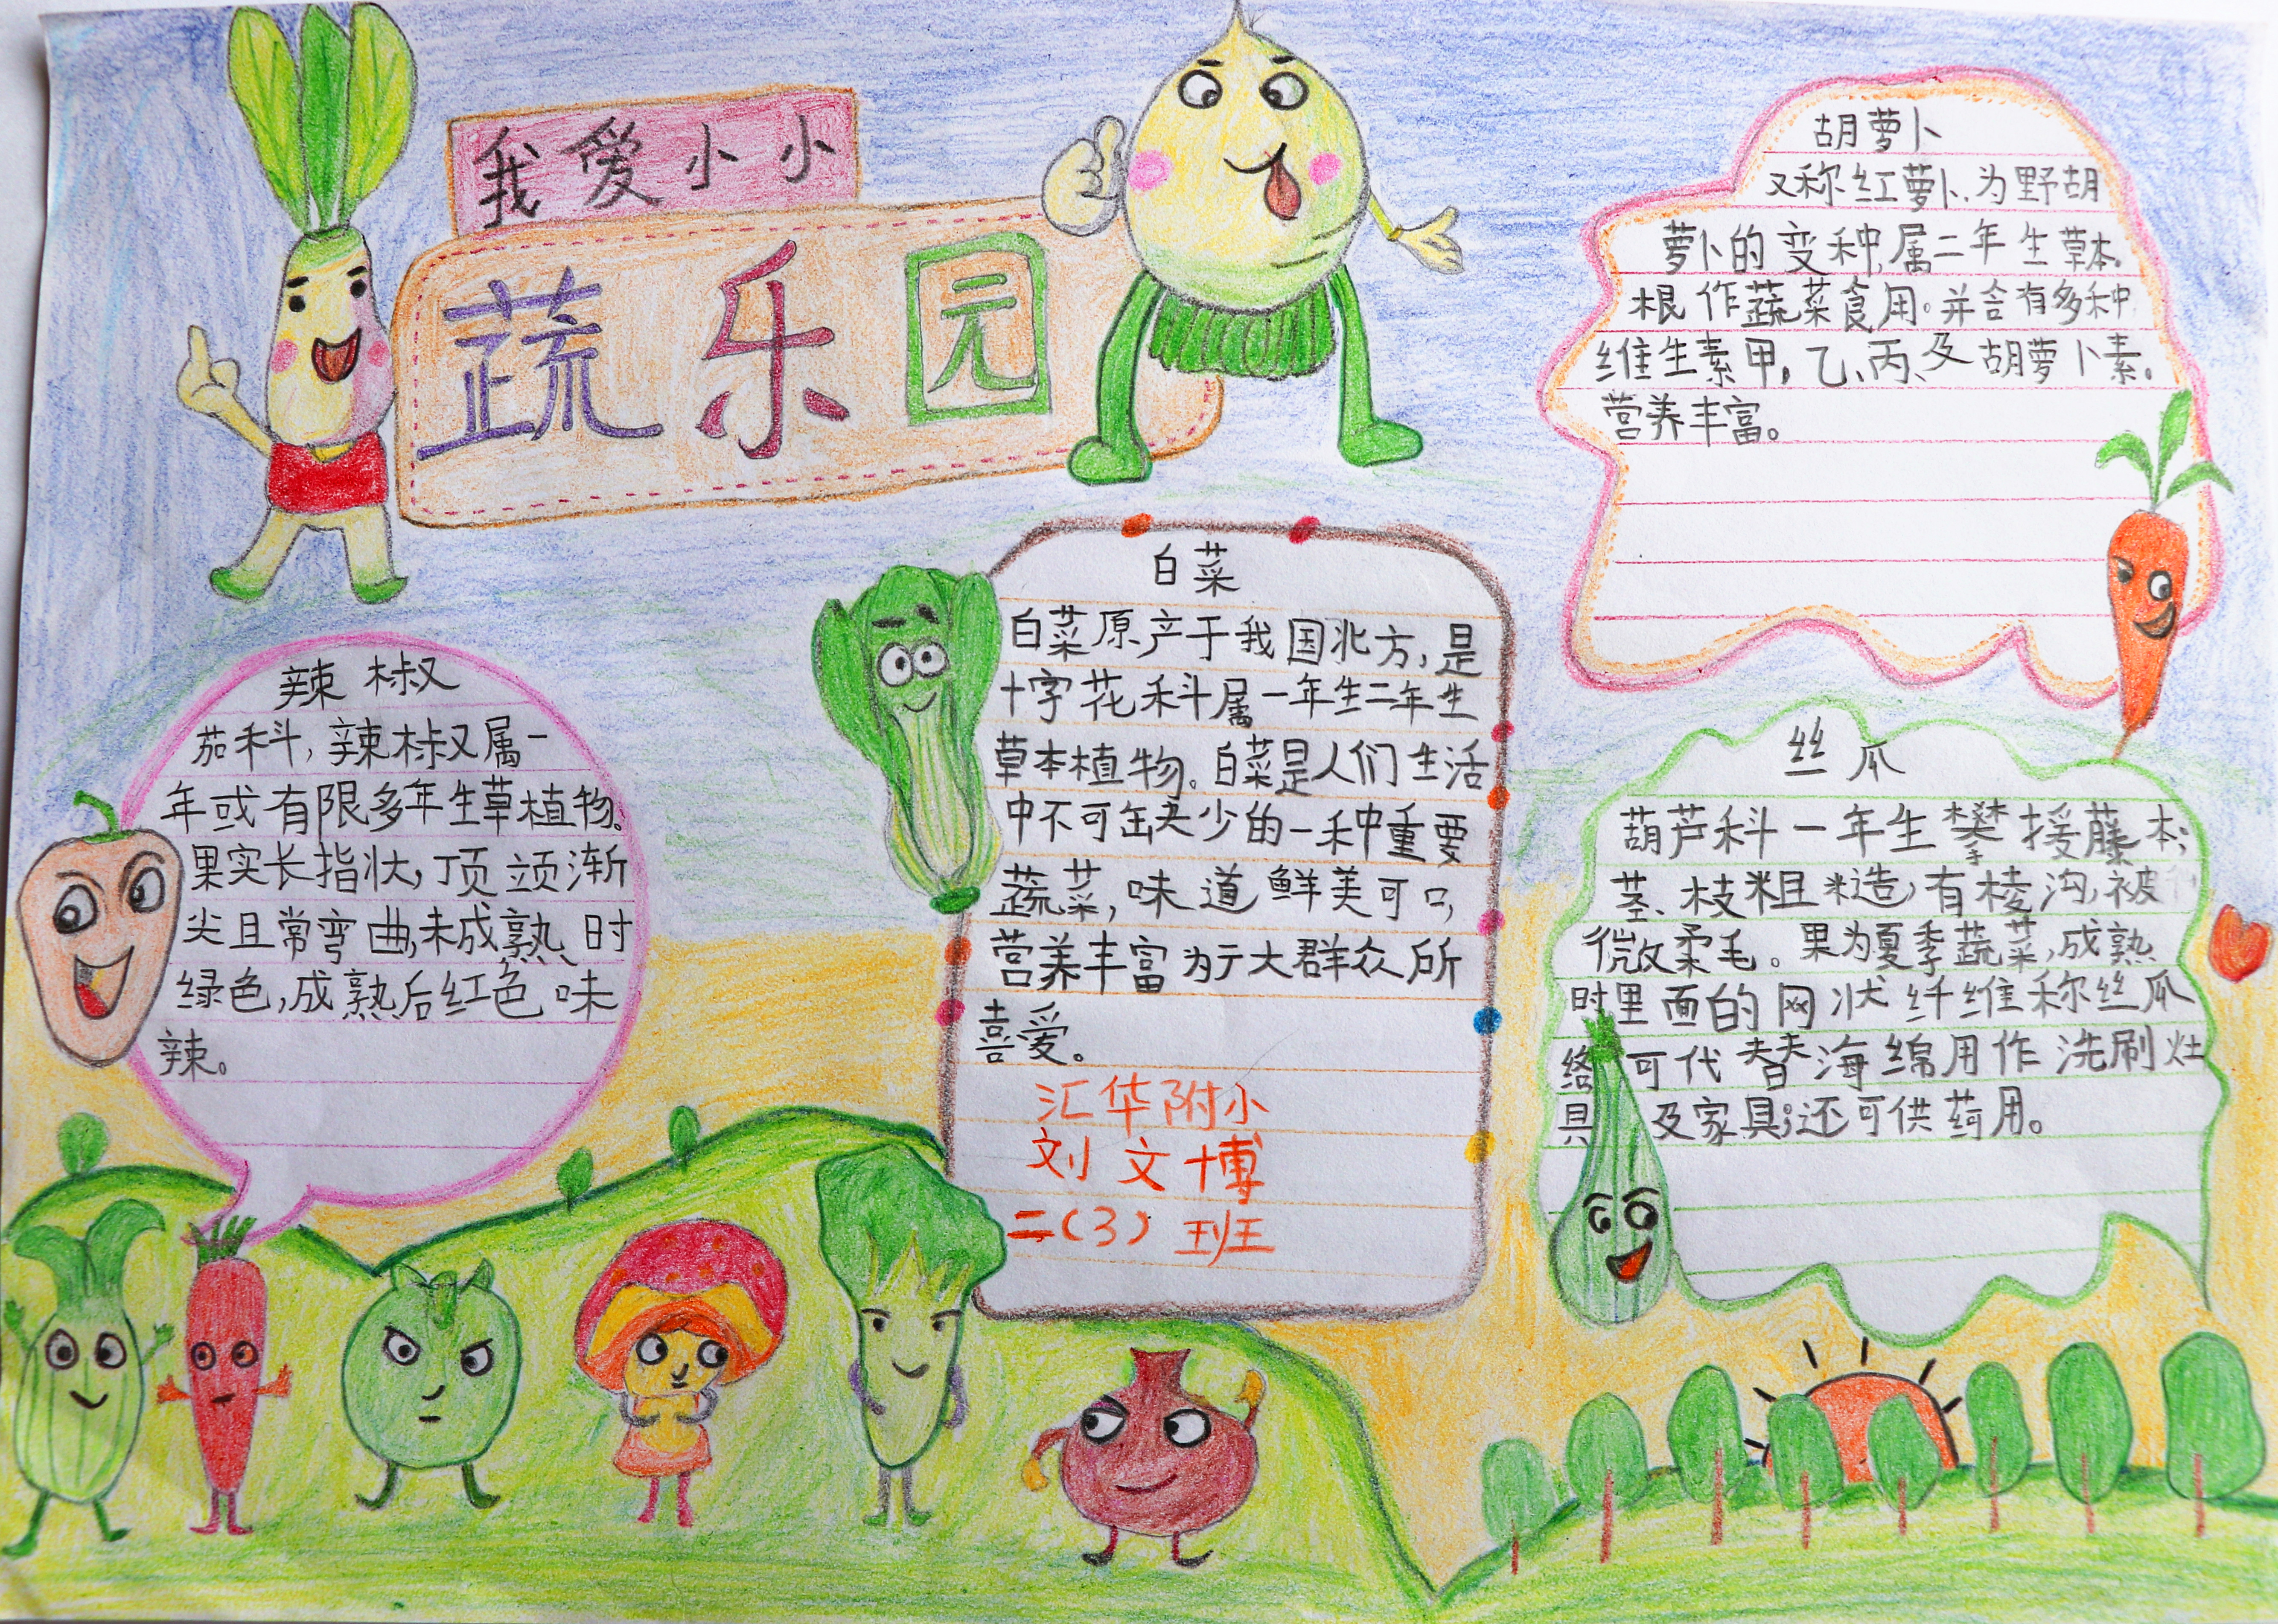 我爱小小
蔬乐园
胡萝卜
又称红萝卜.为野胡
萝卜的变种,属二年生草本.
根作蔬菜食用.并含有多种
维生素甲,乙、丙、及胡萝卜素.
营养丰富。
辣椒
茄科,辣椒又属一
年或有限多年生草植物。
果实长指状,顶颈渐
尖且常弯曲,未成熟、时
绿色,成熟后红色味
辣。
白菜
白菜原产于我国北方,是
十字花科属一年生二年生
草本植物。白菜是人们生活
中不可缺少的一种重要
蔬菜,味道鲜美可口,
营养丰富为于大群众所
喜爱。
汇华附小
刘文博
二(3)班
丝瓜
葫芦科一年生攀援藤本;
茎、枝粗糙,有棱沟,被
微柔毛。果为夏季蔬菜,成熟
时里面的网状纤维称丝瓜
络可代替海绵用作洗刷灶
具及家具;还可供药用。